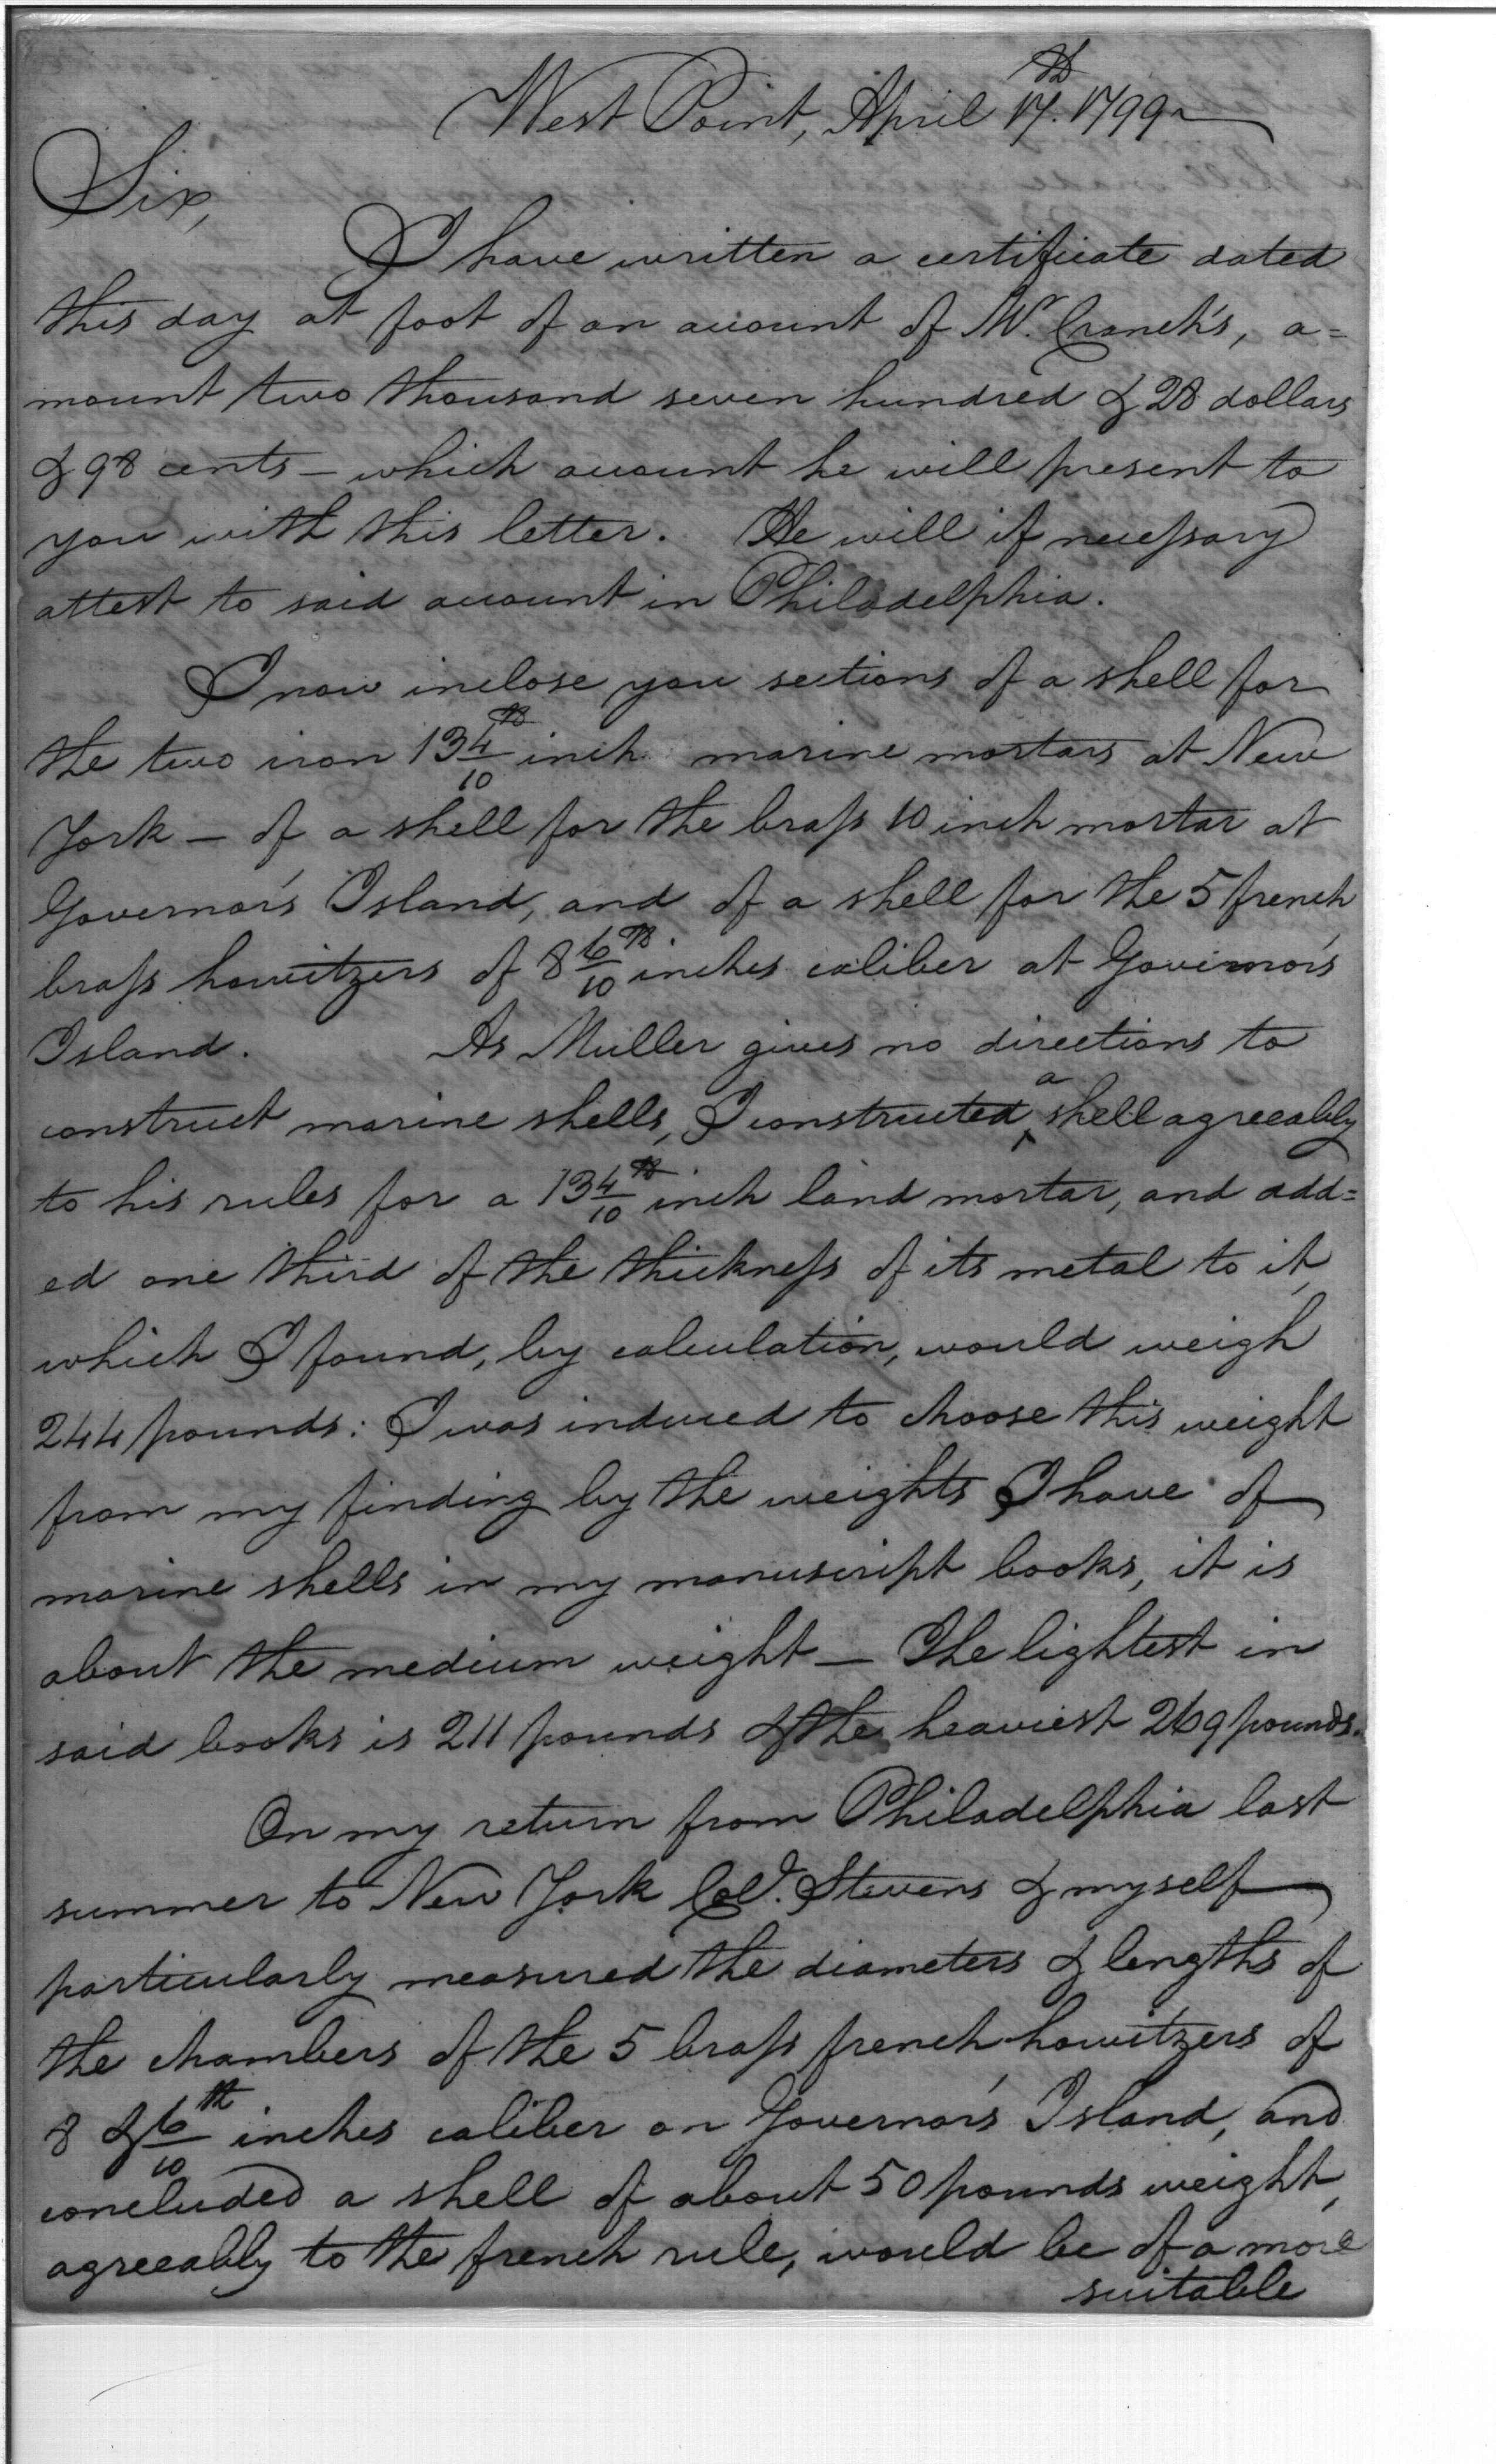 West Point, April 17.th 1799
Sir,
I have written a certificate dated
this day at foot of an account of Mr. Cranch's, a=
mount two thousand seven hundred & 28 dollars
& 98 cents — which account he will present to
you with this letter. He will if necessary
attest to said account in Philadelphia.
I now inclose you sections of a shell for
the two iron 13 4/10th inch marine mortars at New
York — of a shell for the brass 10 inch mortar at
Governor's Island, and of a shell for the 5 french
brass howitzers of 8 6/10th inches caliber at Governor's
Island. As Muller gives no directions to
construct marine shells, I constructed a shell agreeably
to his rules for a 13 4/10th inch land mortar, and add=
ed one third of the thickness of its metal to it,
which I found, by calculation, would weigh
244 pounds: I was induced to choose this weight
from my finding by the weights I have of
marine shells in my manuscript books, it is
about the medium weight — The lightest in
said books is 211 pounds & the heaviest 269 pounds.
On my return from Philadelphia last
summer to New York Col. Stevens & myself
particularly measured the diameters & lengths of
the chambers of the 5 brass french howitzers of
8 & 6/10th inches caliber on Governor's Island, and
concluded a shell of about 50 pounds weight,
agreeably to the french rule, would be of a more
suitable